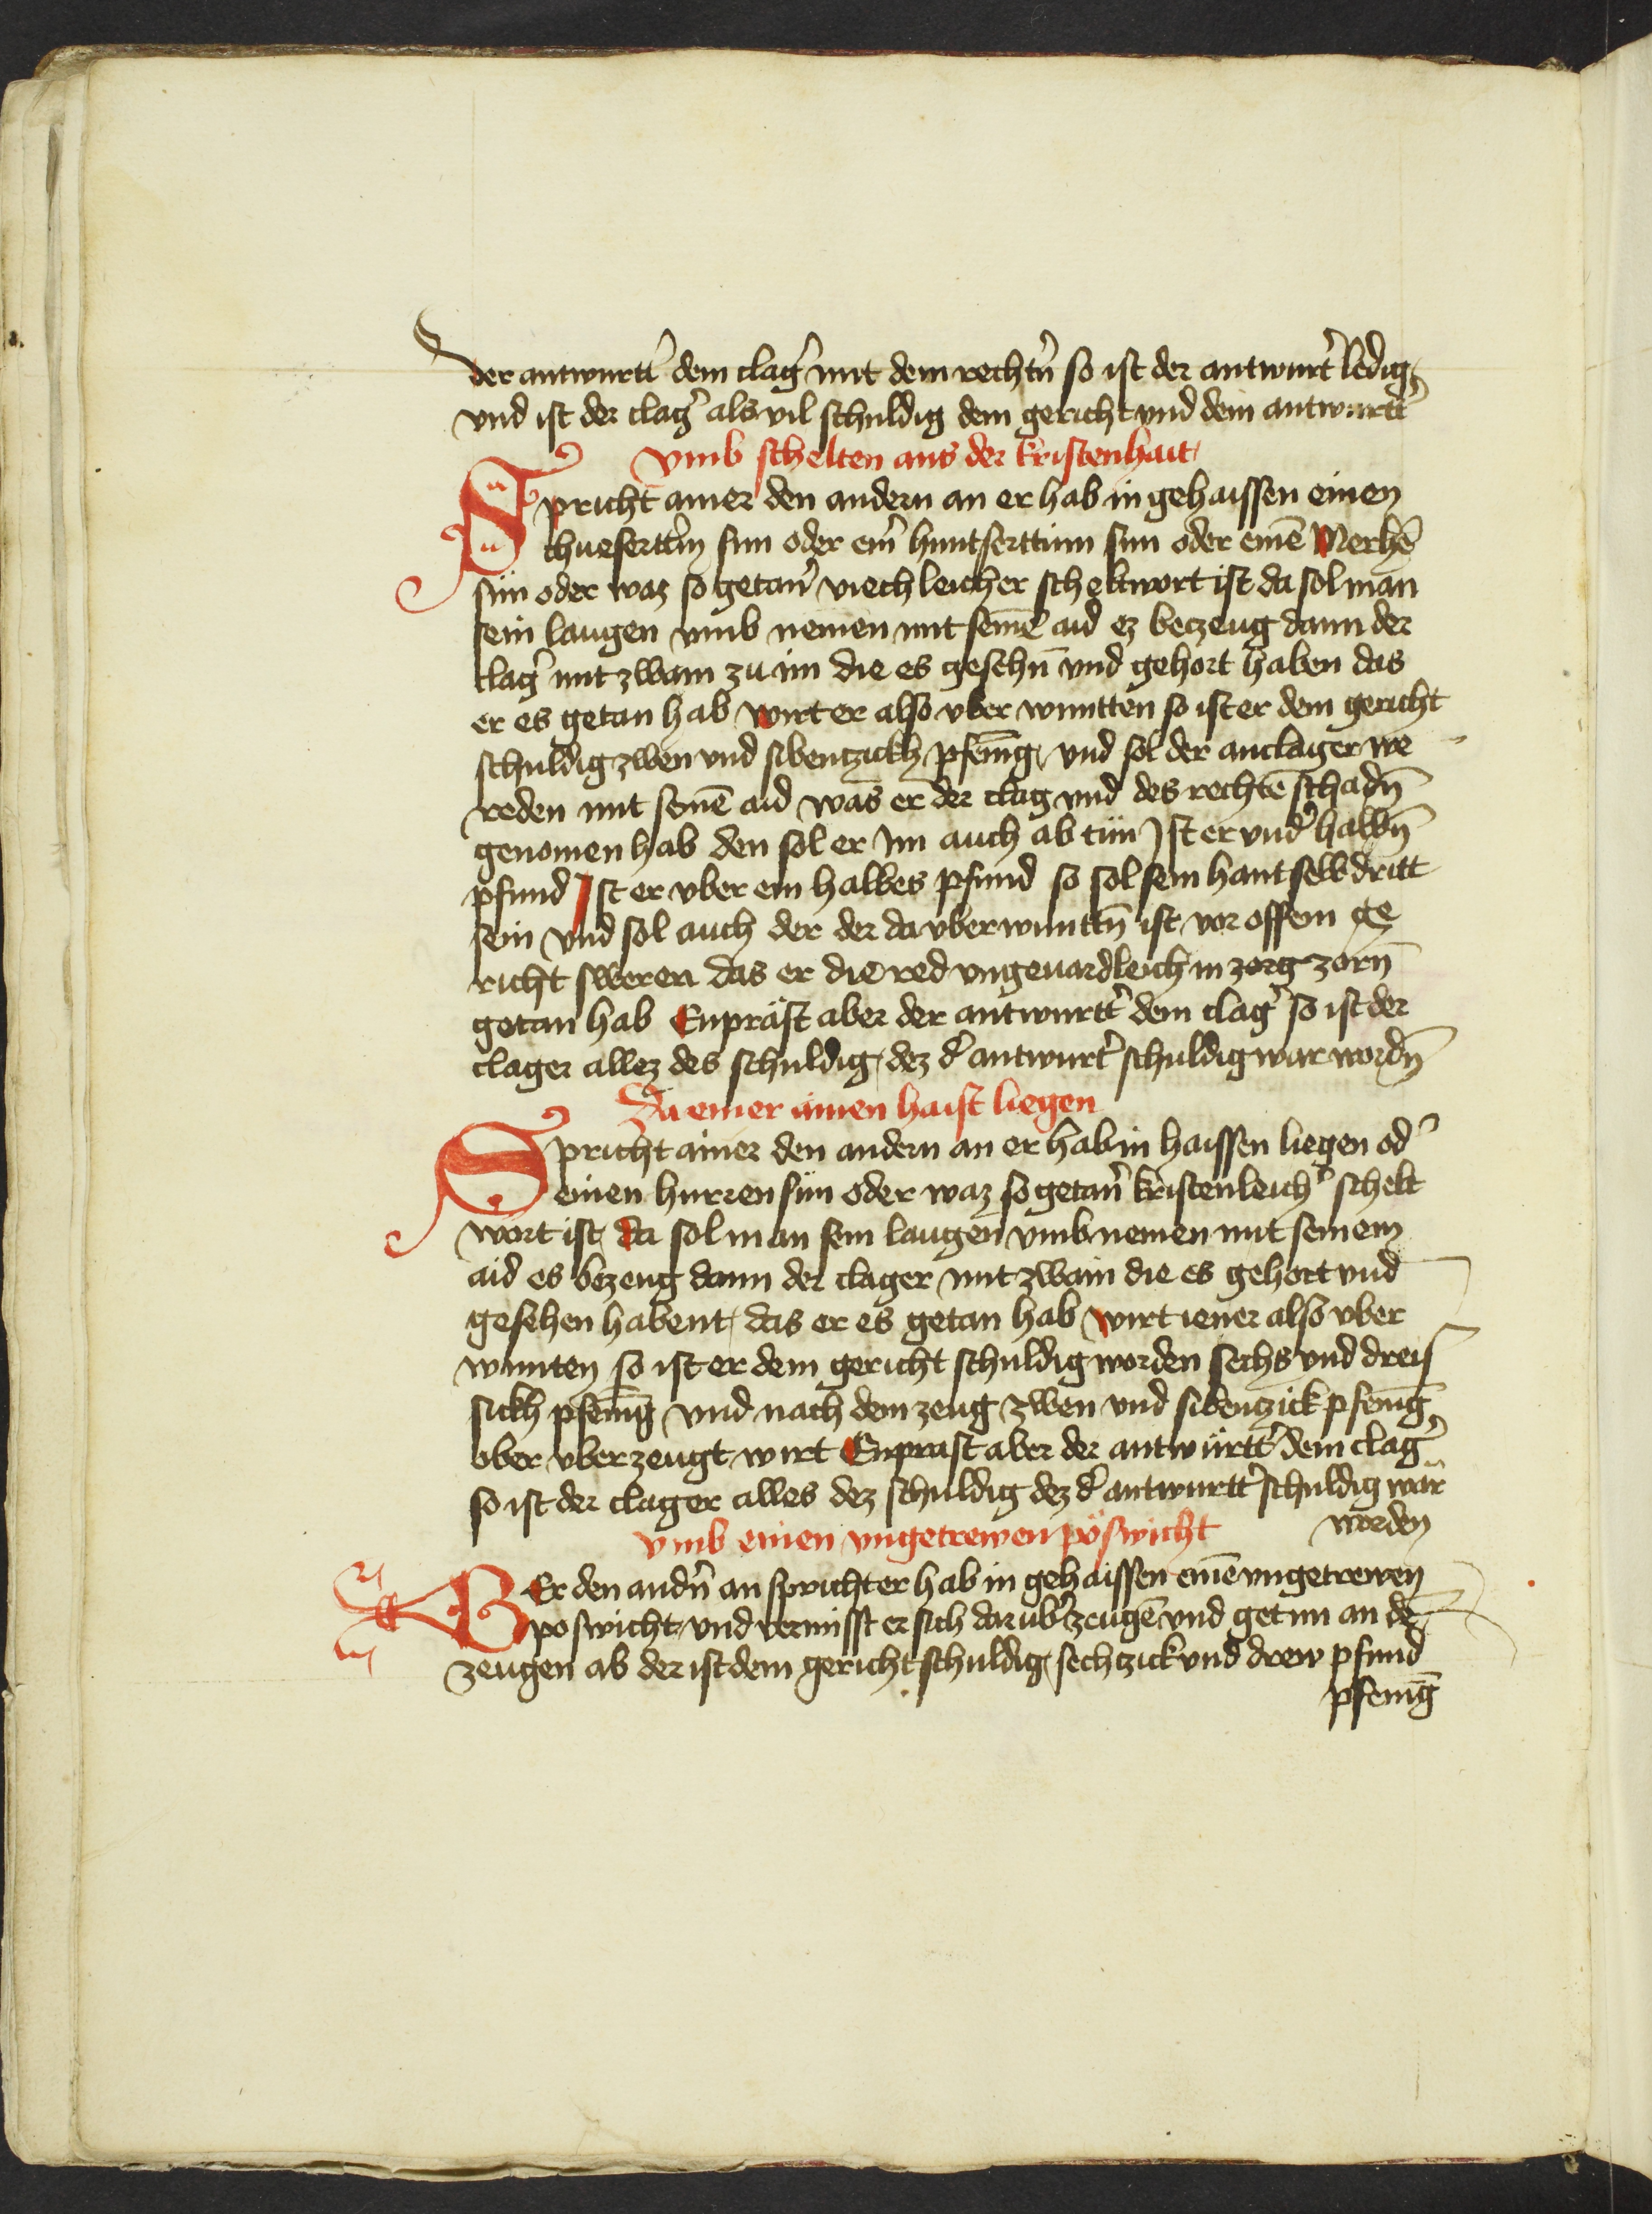 der antwurtt̉ dem clag̉ mit dem rechtn̄ so ist der antwurt̉ ledig
vnd ist der clag̉ als vil schuldig dem gericht vnd dem antwurtt̉
vmb schelten aus der kristenhait
Spricht ainer den andern an er hab in gehaissen einen
chueserttin̄ sun oder ein̄ huntserttinn sun oder einē Merhē
sün oder waz so getan̉ viechleicher scheltwort ist da sol man
sein laugen vmb nemen mit seinē aid ez beczeug dann der
clag̉ mit zwain zu im die es gesehn̄ vnd gehort haben das
er es getan hab wirt er also vber wuntten so ist er dem gericht
schuldig zwen vnd sibentzickh pfenīg vnd sol der anclager we
reden mit seinē aid was er der clag vnd des rechtē schadn̄
genomen hab den sol er Im auch ab tün Ist er vnd̉ halbn̄
pfund Ist er vber ein halbes pfund so sol sein hant selbdritt
sein vnd sol auch der der da vberwunttn̄ ist vor offem ge
richt sweren das er die red vngeuardleich in zorg zorn̄
getan hab Enpräst aber der antwurtt̉ dem clag̉ so ist der
clager allez des schuldig dez d̉ antwurt̉ schuldig wär wordn̄
Da einer ainen haist liegen
Spricht ainer den andern an er hab in haissen liegen od̉
einen hurren sün oder waz so getan̉ kristenleich̉ schelt
wort ist da sol man sein laugen vmb nemen mit seinem
aid es bezeug dann der clager mit zwain die es gehort vnd
gesehen habent das er es getan hab wirt iener also vber
wunten so ist er dem gericht schuldig worden sechs vnd dreis
sickh pfenīg vnd nach dem zeug zwen vnd sibenczick pfenīg
ober vberzeugt wirt Enprast aber der antwürtt̉ dem clag̉
so ist der clager alles dez schuldig dez d̉ antwurtt̉ schuldig wär
worden
vmb einen vngetrewen pöswicht
WEr den andn̄ an spricht er hab in gehaissen einē vngetrewen
poswicht vnd vermisst er sich darub̉ zeugē vnd get im an dē
zeugen ab der ist dem gericht schuldig sechczick vnd drew pfund
pfenīg